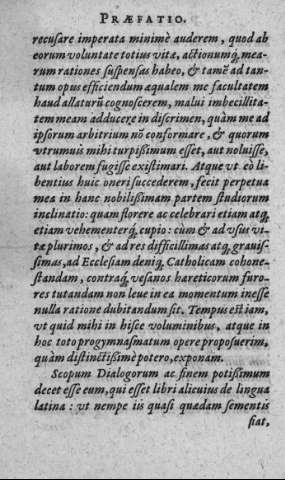 PRÆFATIO.
recusare imperata minimè auderem, quod ab
eorum voluntate totius vitæ, actionumq́ mea-
rum rationes suspensas habeo, & tamē ad tan-
tum opus efficiendum æqualem me facultatem
haud allaturū cognoscerem, malui imbecillita-
tem meam adducere in discrimen, quàm me ad
ipsorum arbitrium nō conformare, & quorum
vtrumuis mihi turpißimum esset, aut noluisse,
aut laborem fugisse existimari. Atque vt eò li-
bentius huic oneri succederem, fecit perpetua
mea in hanc nobilißimam partem studiorum
inclinatio: quam florere ac celebrari etiam atq́
etiam vehementerq́ cupio: cùm & ad vsus vi-
tæ plurimos, & ad res difficillimas atq́ grauis-
simas, ad Ecclesiam deniq́ Catholicam cohone-
standam, contraq́ vesanos hæreticorum furo-
res tutandam non leue in ea momentum inesse
nulla ratione dubitandum sit. Tempus est iam,
vt quid mihi in hisce voluminibus, atque in
hoc toto progymnasmatum opere proposuerim,
quàm distinctißimè potero, exponam.
Scopum Dialogorum ac finem potißimum
decet esse eum, qui esset libri alicuius de lingua
latina: vt nempe iis quasi quædam sementis
fiat,